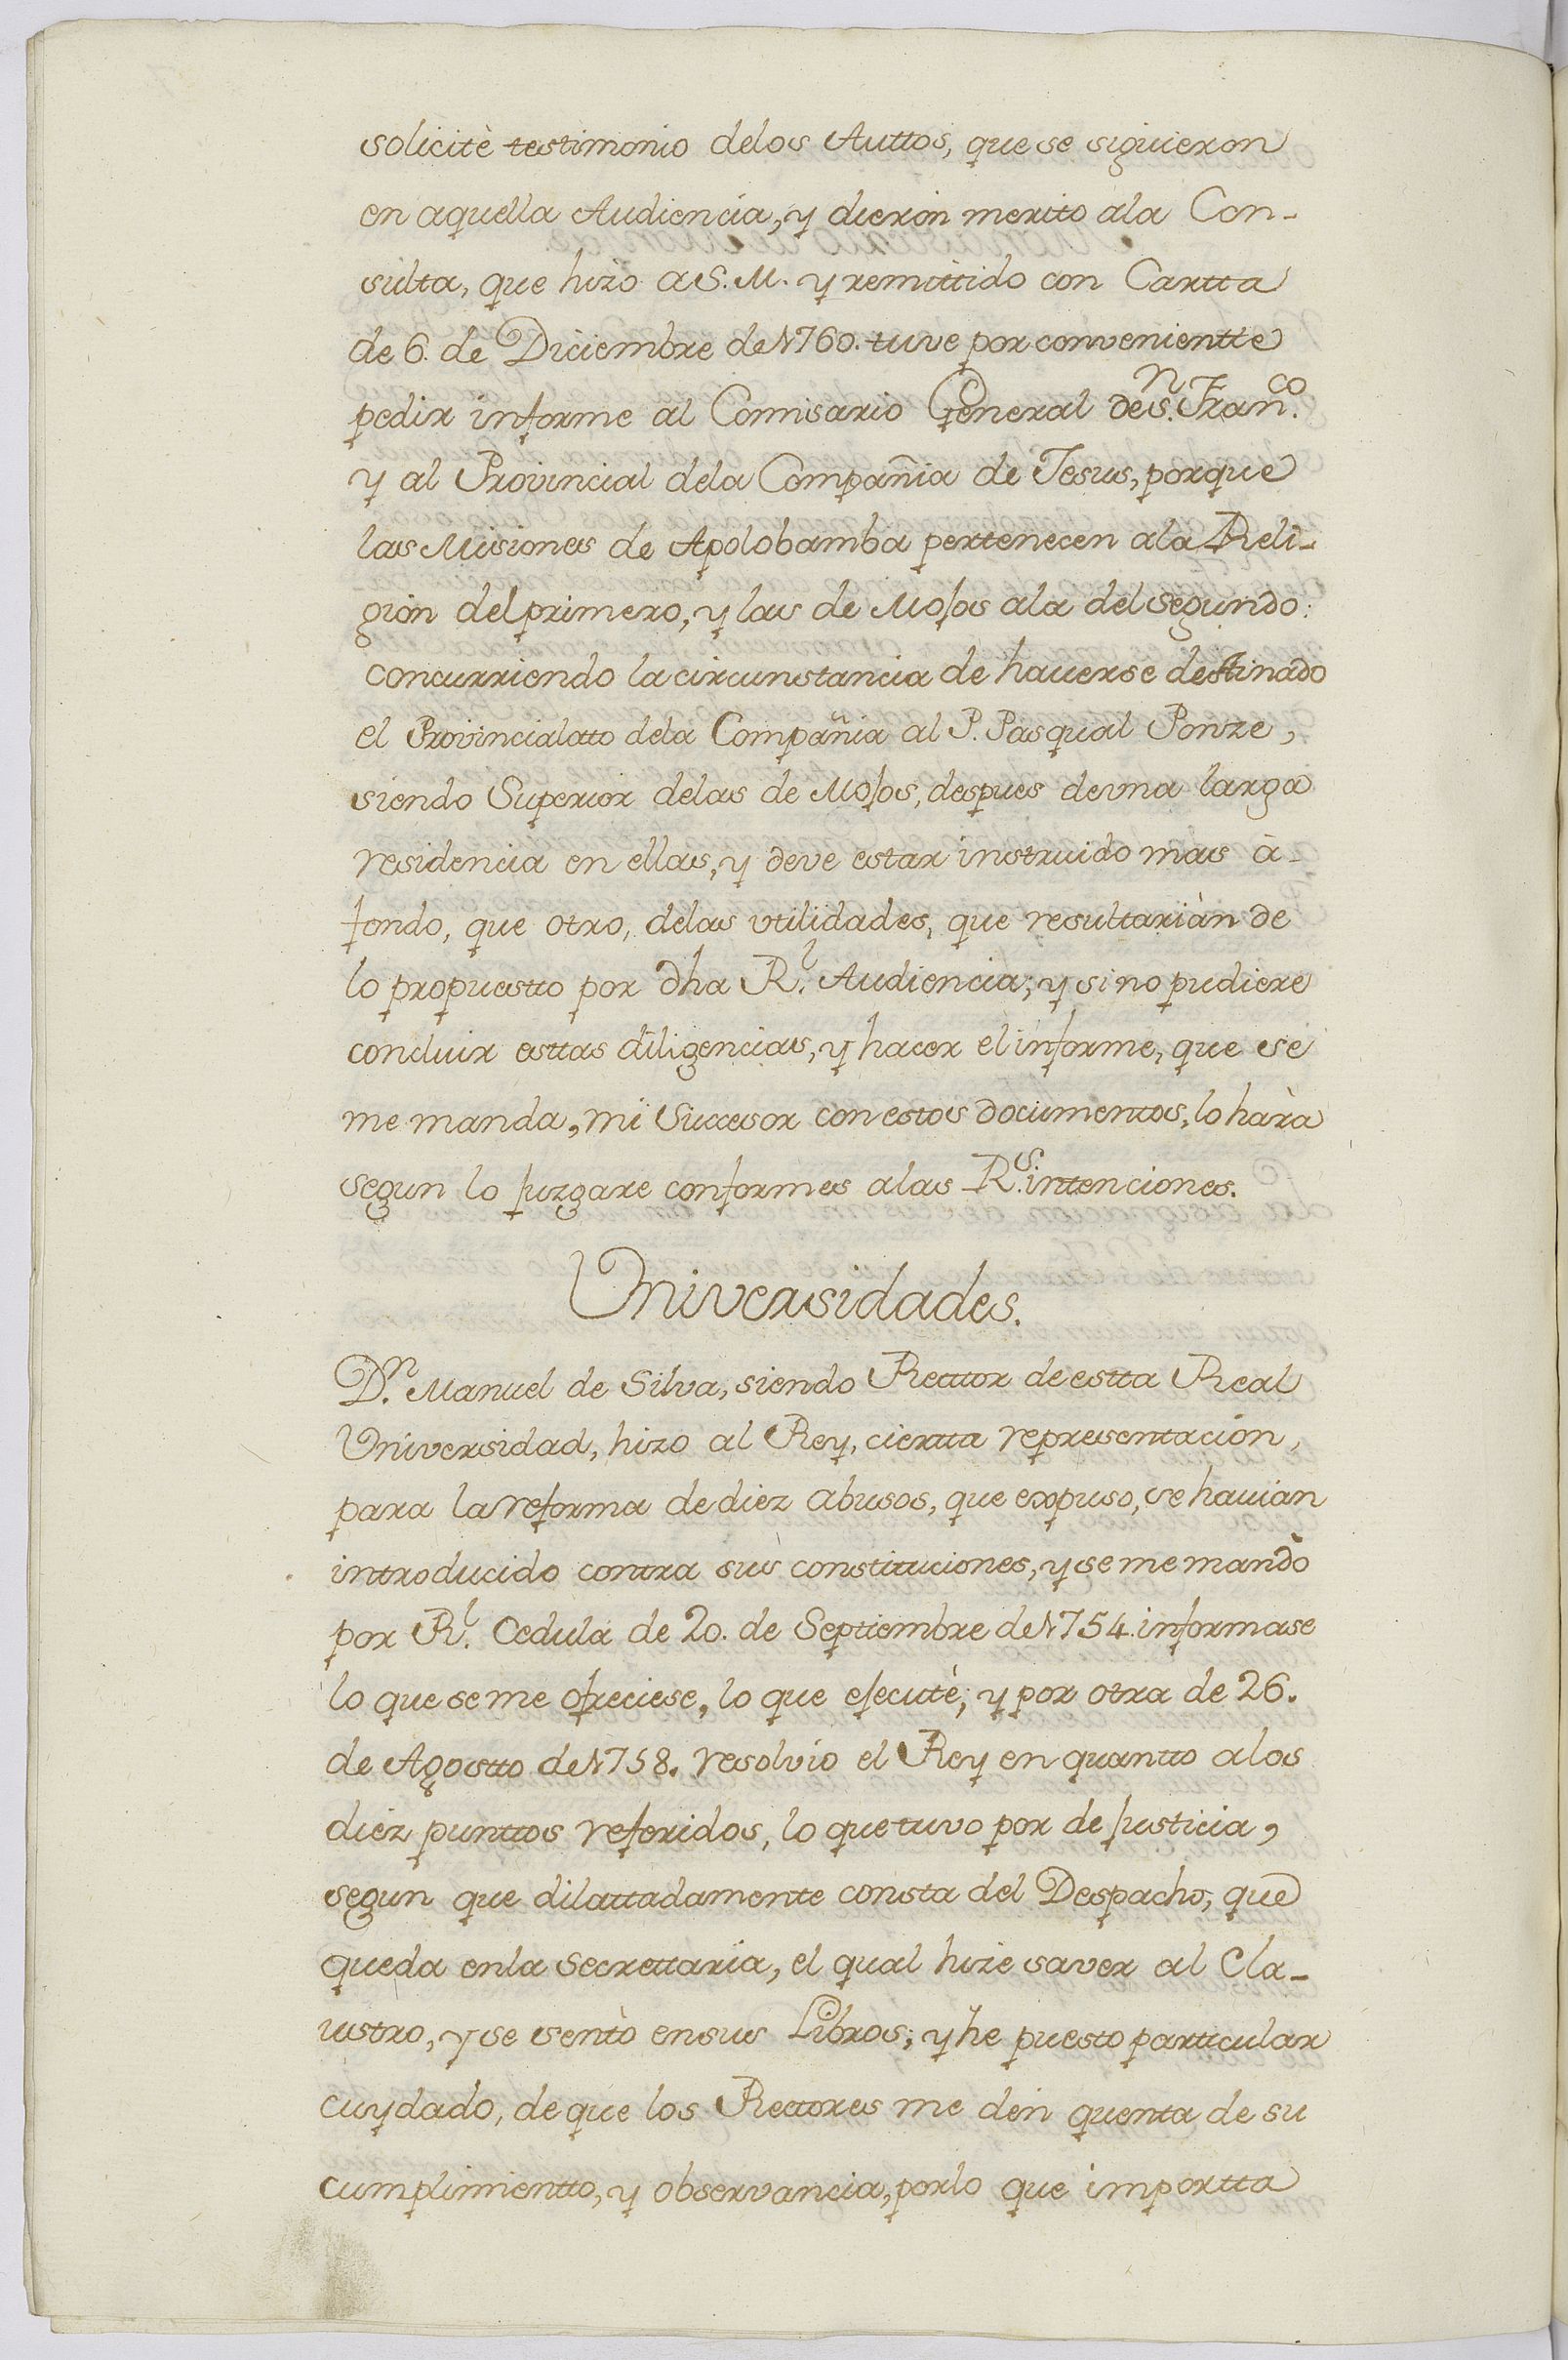 solicitè testimonio delos Auttos, que se siguieron
en aquella Audiencia, y dieron merito ala Con-
sulta, que hizo a S. M. y remittido con Cartta
de 6. de Diciembre de 1760. tuve por convenientte
pedir informe al Comisario General de S.n Fran.co
y al Provincial dela Compañia de Jesus, porque
las Misiones de Apolobamba pertenecen ala Reli-
gion del primero, y las de Mojos ala del segundo:
concurriendo la circunstancia de haverse destinado
el Provincialatto dela Compañia al P. Pasqual Ponze,
siendo Superior delas de Mojos, despues de vna larga
residencia en ellas, y deve estar instruido mas à-
fondo, que otro, delas vtilidades, que resultarian de
lo propuestto por dha R.l Audiencia; y si no pudiere
concluir esttas diligencias, y hacer el informe, que se
me manda, mi Succesor con estos documentos, lo harà
segun lo juzgare conformes alas R.s intenciones.
Universidades.
D.n Manuel de Silva, siendo Recttor de estta Real
Universidad, hizo al Rey, ciertta representacion,
para la reforma de diez abusos, que expuso, se havian
introducido contra sus constituciones, y se me mandò
por R.l Cedula de 20. de Septiembre de 1754. informase
lo que se me ofreciese, lo que ejecutè; y por otra de 26.
de Agostto de 1758. resolvio el Rey en quantto alos
diez punttos referidos, lo que tuvo por de justicia,
segun que dilattadamente consta del Despacho, que
queda enla Secrettaria, el qual hize saver al Cla-
ustro, y se sentò en sus Libros; y he puesto particular
cuydado, de que los Rectores me den quenta de su
cumplimientto, y observancia, porlo que importta